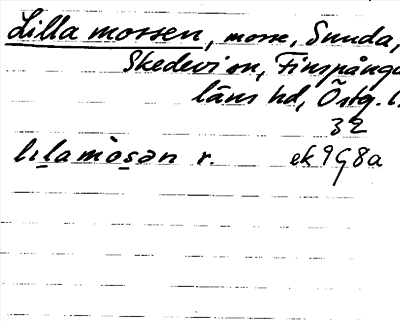 Lilla mossen, mosse, Sunda,
Skedevi sn, Finspånga
läns hd, Östg. l.
32
lɩlamòsən r. ek 9G8a